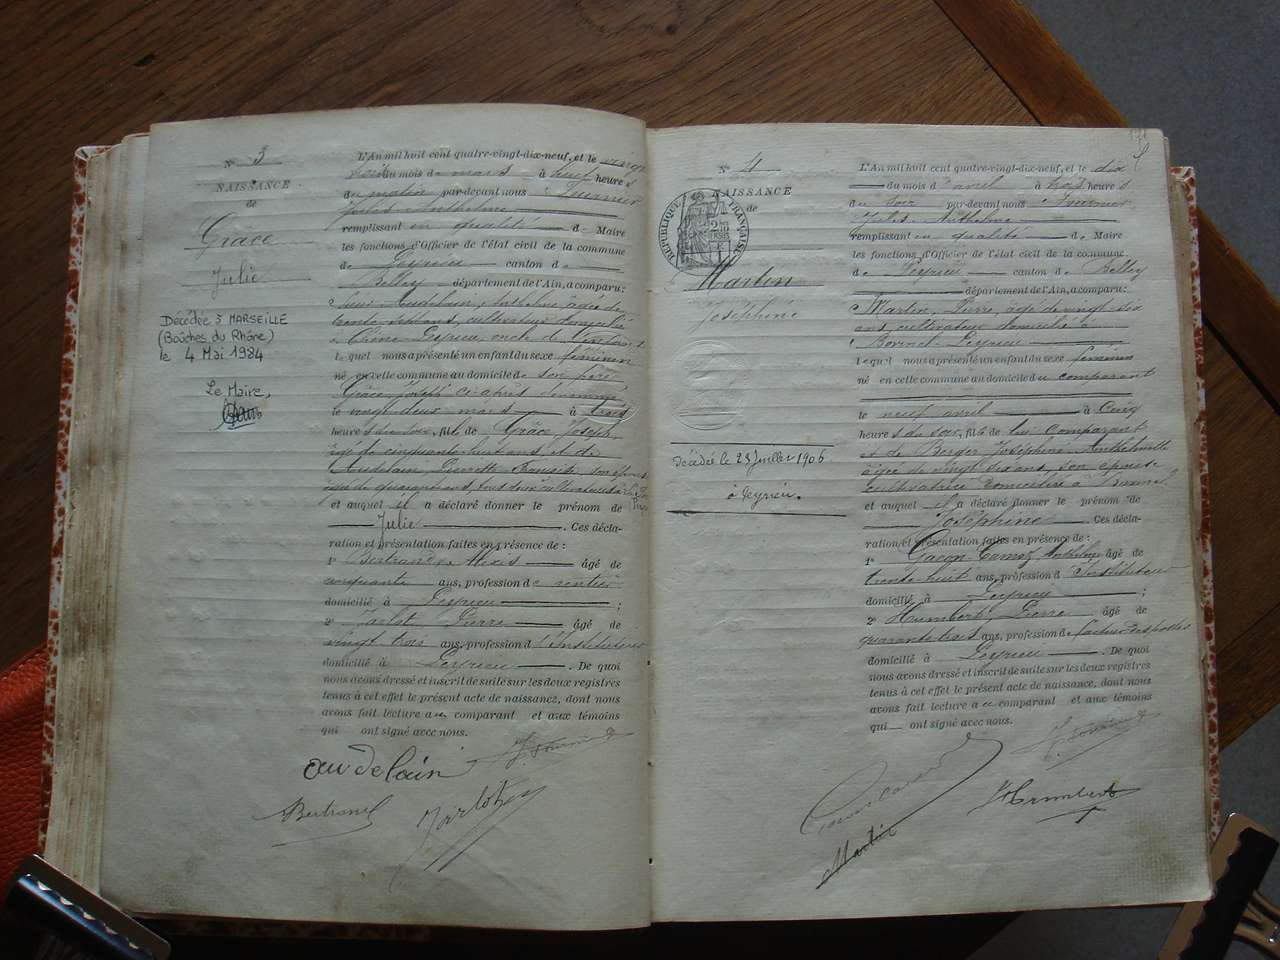 N° 3
NAISSANCE
de
Grâce
Julie
Décédée à MARSEILLE
(Bouches du Rhône)
le 4 Mai 1984
Le Maire,
L'An mil huit cent quatre-vingt-dix-neuf, et le vingt
trois du mois de mars à neuf heures
du matin par-devant nous Fournier
Jules Anthelme
remplissant en qualité de Maire
les fonctions d'Officier de l'état civil de la commune
de Peyrieu canton de
Belley département de l'Ain, a comparu:
Audelain, Anthelme âgé de
trente sept ans, cultivateur domicilié
à Peyrieu, oncle de l'enfant
lequel nous a présenté un enfant du sexe féminin
né en cette commune au domicile de son père
Grâce Joseph ci après dénommé
le vingt deux mars à trois
heures du soir, fille de Grâce Joseph,
âgé de cinquante huit ans et de
Audelain, Pierrette Françoise son épouse
âgée de quarante ans, tous deux cultivateurs
et auquel il a déclaré donner le prénom de
Julie. Ces décla-
ration et présentation faites en présence de :
1° Bertrand, Alexis âgé de
cinquante ans, profession de rentier
domicilié à Peyrieu ;
2° Jarlot Pierre âgé de
vingt trois ans, profession d'Instituteur
domicilié à Peyrieu. De quoi
nous avons dressé et inscrit de suite sur les deux registres
tenus à cet effet le présent acte de naissance, dont nous
avons fait lecture au comparant et aux témoins
qui ont signé avec nous.
audelain J. Fournier
Bertrand Jarlot
N° 4
NAISSANCE
de
RÉPUBLIQUE FRANÇAISE
Martin
Joséphine
Décédée le 23 Juillet 1906
à Peyrieu.
L'An mil huit cent quatre-vingt-dix-neuf, et le dix
du mois d'avril à trois heures
du soir par-devant nous Fournier
Jules Anthelme
remplissant en qualité de Maire
les fonctions d'Officier de l'état civil de la commune
de Peyrieu canton de Belley
département de l'Ain, a comparu:
Martin, Pierre, âgé de vingt dix
ans, cultivateur domicilié à
Peyrieu
lequel nous a présenté un enfant du sexe féminin
né en cette commune au domicile du comparant
le neuf avril à cinq
heures du soir, fille de lui Comparant
et de Berger Joséphine Anthelmette
âgée de vingt six ans, son épouse
cultivatrice domiciliée à
et auquel il a déclaré donner le prénom de
Joséphine. Ces décla-
ration et présentation faites en présence de :
1° Gacon-Camoz Anthelme âgé de
trente huit ans, profession d'Instituteur
domicilié à Peyrieu ;
2° Humbert, Pierre âgé de
quarante trois ans, profession de facteur des postes
domicilié à Peyrieu. De quoi
nous avons dressé et inscrit de suite sur les deux registres
tenus à cet effet le présent acte de naissance, dont nous
avons fait lecture au comparant et aux témoins
qui ont signé avec nous.
J. Fournier
Humbert
Martin